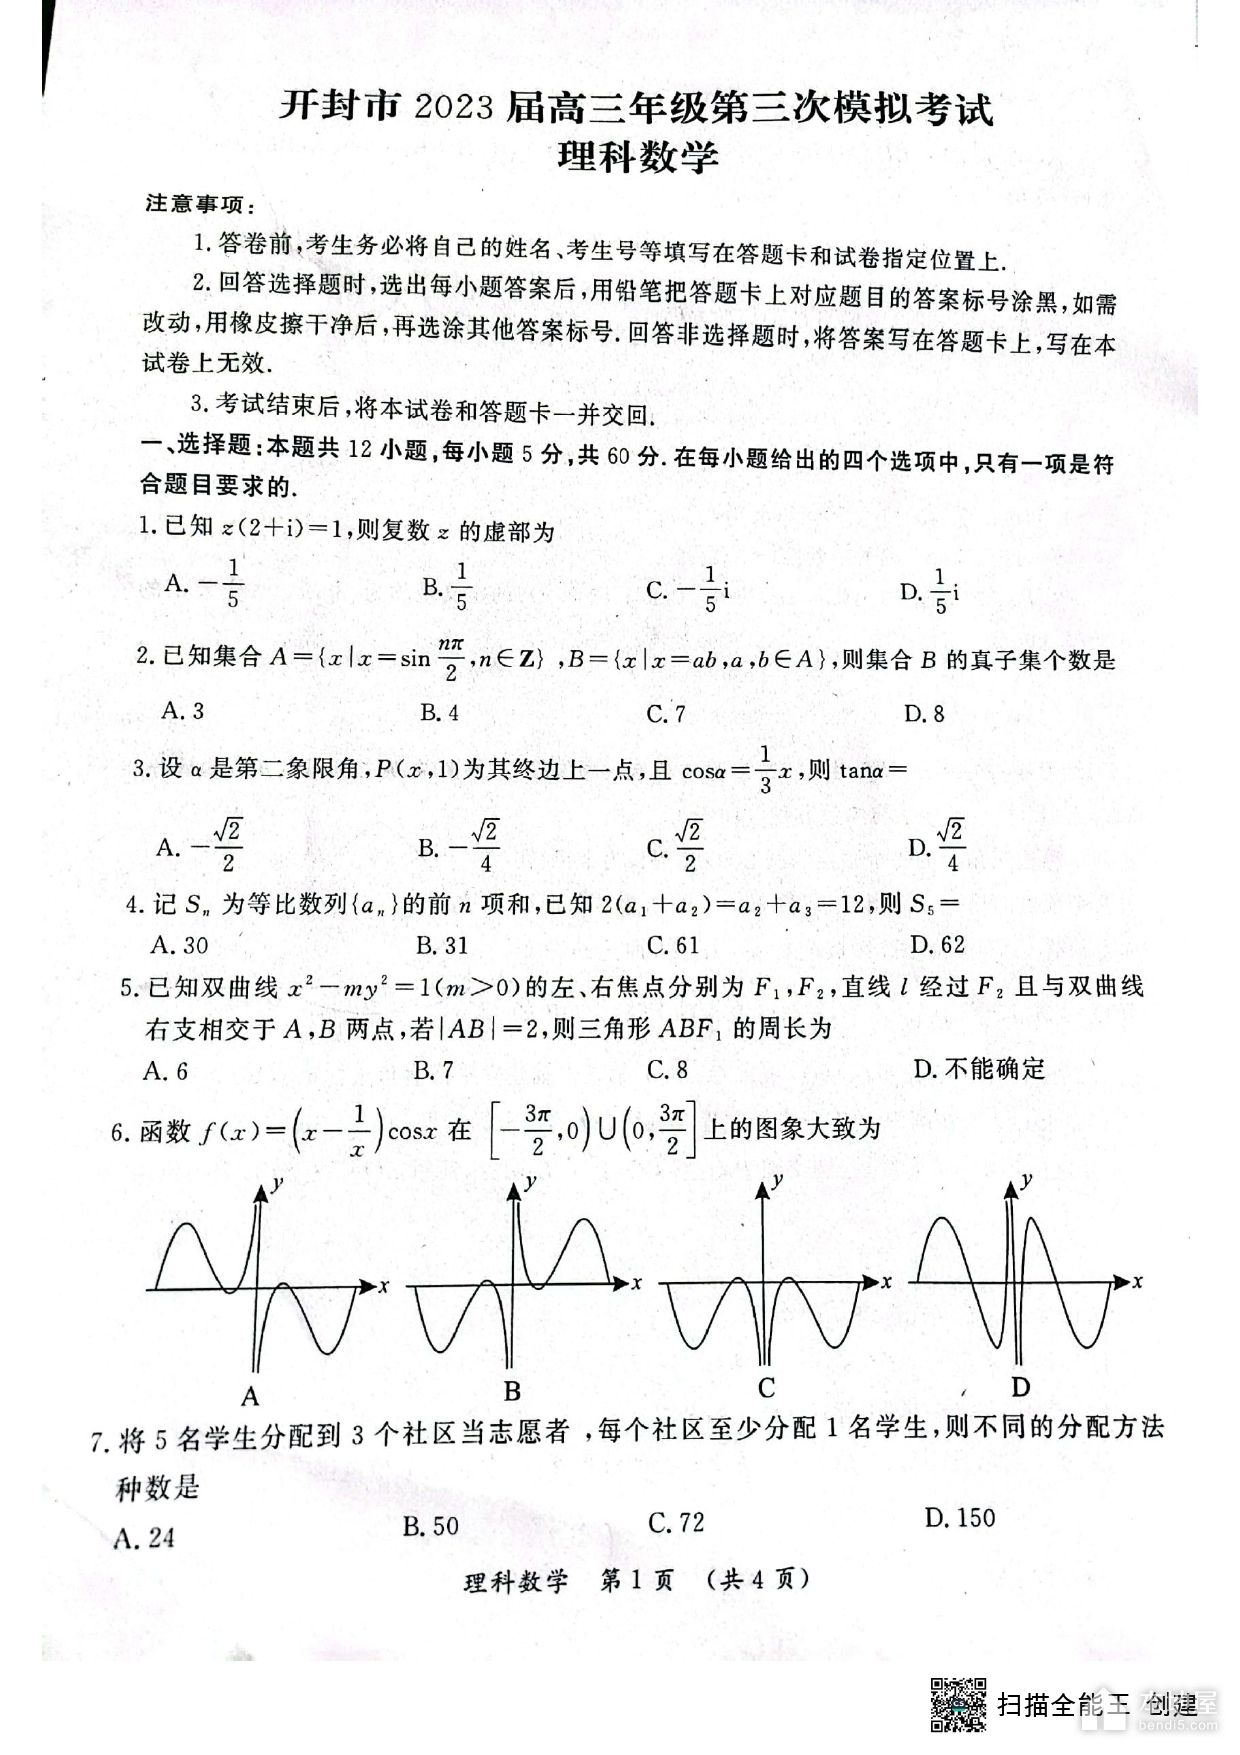 开封市 2023 届高三年级第三次模拟考试
理科数学
注意事项:
1. 答卷前,考生务必将自己的姓名、考生号等填写在答题卡和试卷指定位置上.
2. 回答选择题时,选出每小题答案后,用铅笔把答题卡上对应题目的答案标号涂黑,如需
改动,用橡皮擦干净后,再选涂其他答案标号. 回答非选择题时,将答案写在答题卡上,写在本
试卷上无效.
3. 考试结束后,将本试卷和答题卡一并交回.
一、选择题:本题共 12 小题,每小题 5 分,共 60 分. 在每小题给出的四个选项中,只有一项是符
合题目要求的.
1. 已知 z(2+i)=1,则复数 z 的虚部为
A. -1/5 B. 1/5 C. -1/5 i D. 1/5 i
2. 已知集合 A={x|x=sin nπ/2, n∈Z} ,B={x|x=ab,a,b∈A},则集合 B 的真子集个数是
A. 3 B. 4 C. 7 D. 8
3. 设 α 是第二象限角,P(x,1)为其终边上一点,且 cosα=1/3 x,则 tanα=
A. -√2/2 B. -√2/4 C. √2/2 D. √2/4
4. 记 Sₙ 为等比数列{aₙ}的前 n 项和,已知 2(a₁+a₂)=a₂+a₃=12,则 S₅=
A. 30 B. 31 C. 61 D. 62
5. 已知双曲线 x²-my²=1(m>0)的左、右焦点分别为 F₁,F₂,直线 l 经过 F₂ 且与双曲线
右支相交于 A,B 两点,若|AB|=2,则三角形 ABF₁ 的周长为
A. 6 B. 7 C. 8 D. 不能确定
6. 函数 f(x)=(x-1/x)cosx 在 [-3π/2,0)∪(0,3π/2]上的图象大致为
y y y y
x x x x
A B C D
7. 将 5 名学生分配到 3 个社区当志愿者,每个社区至少分配 1 名学生,则不同的分配方法
种数是
A. 24 B. 50 C. 72 D. 150
理科数学 第 1 页 (共 4 页)
CS
扫描全能王 创建
本地屋
bendi5.com